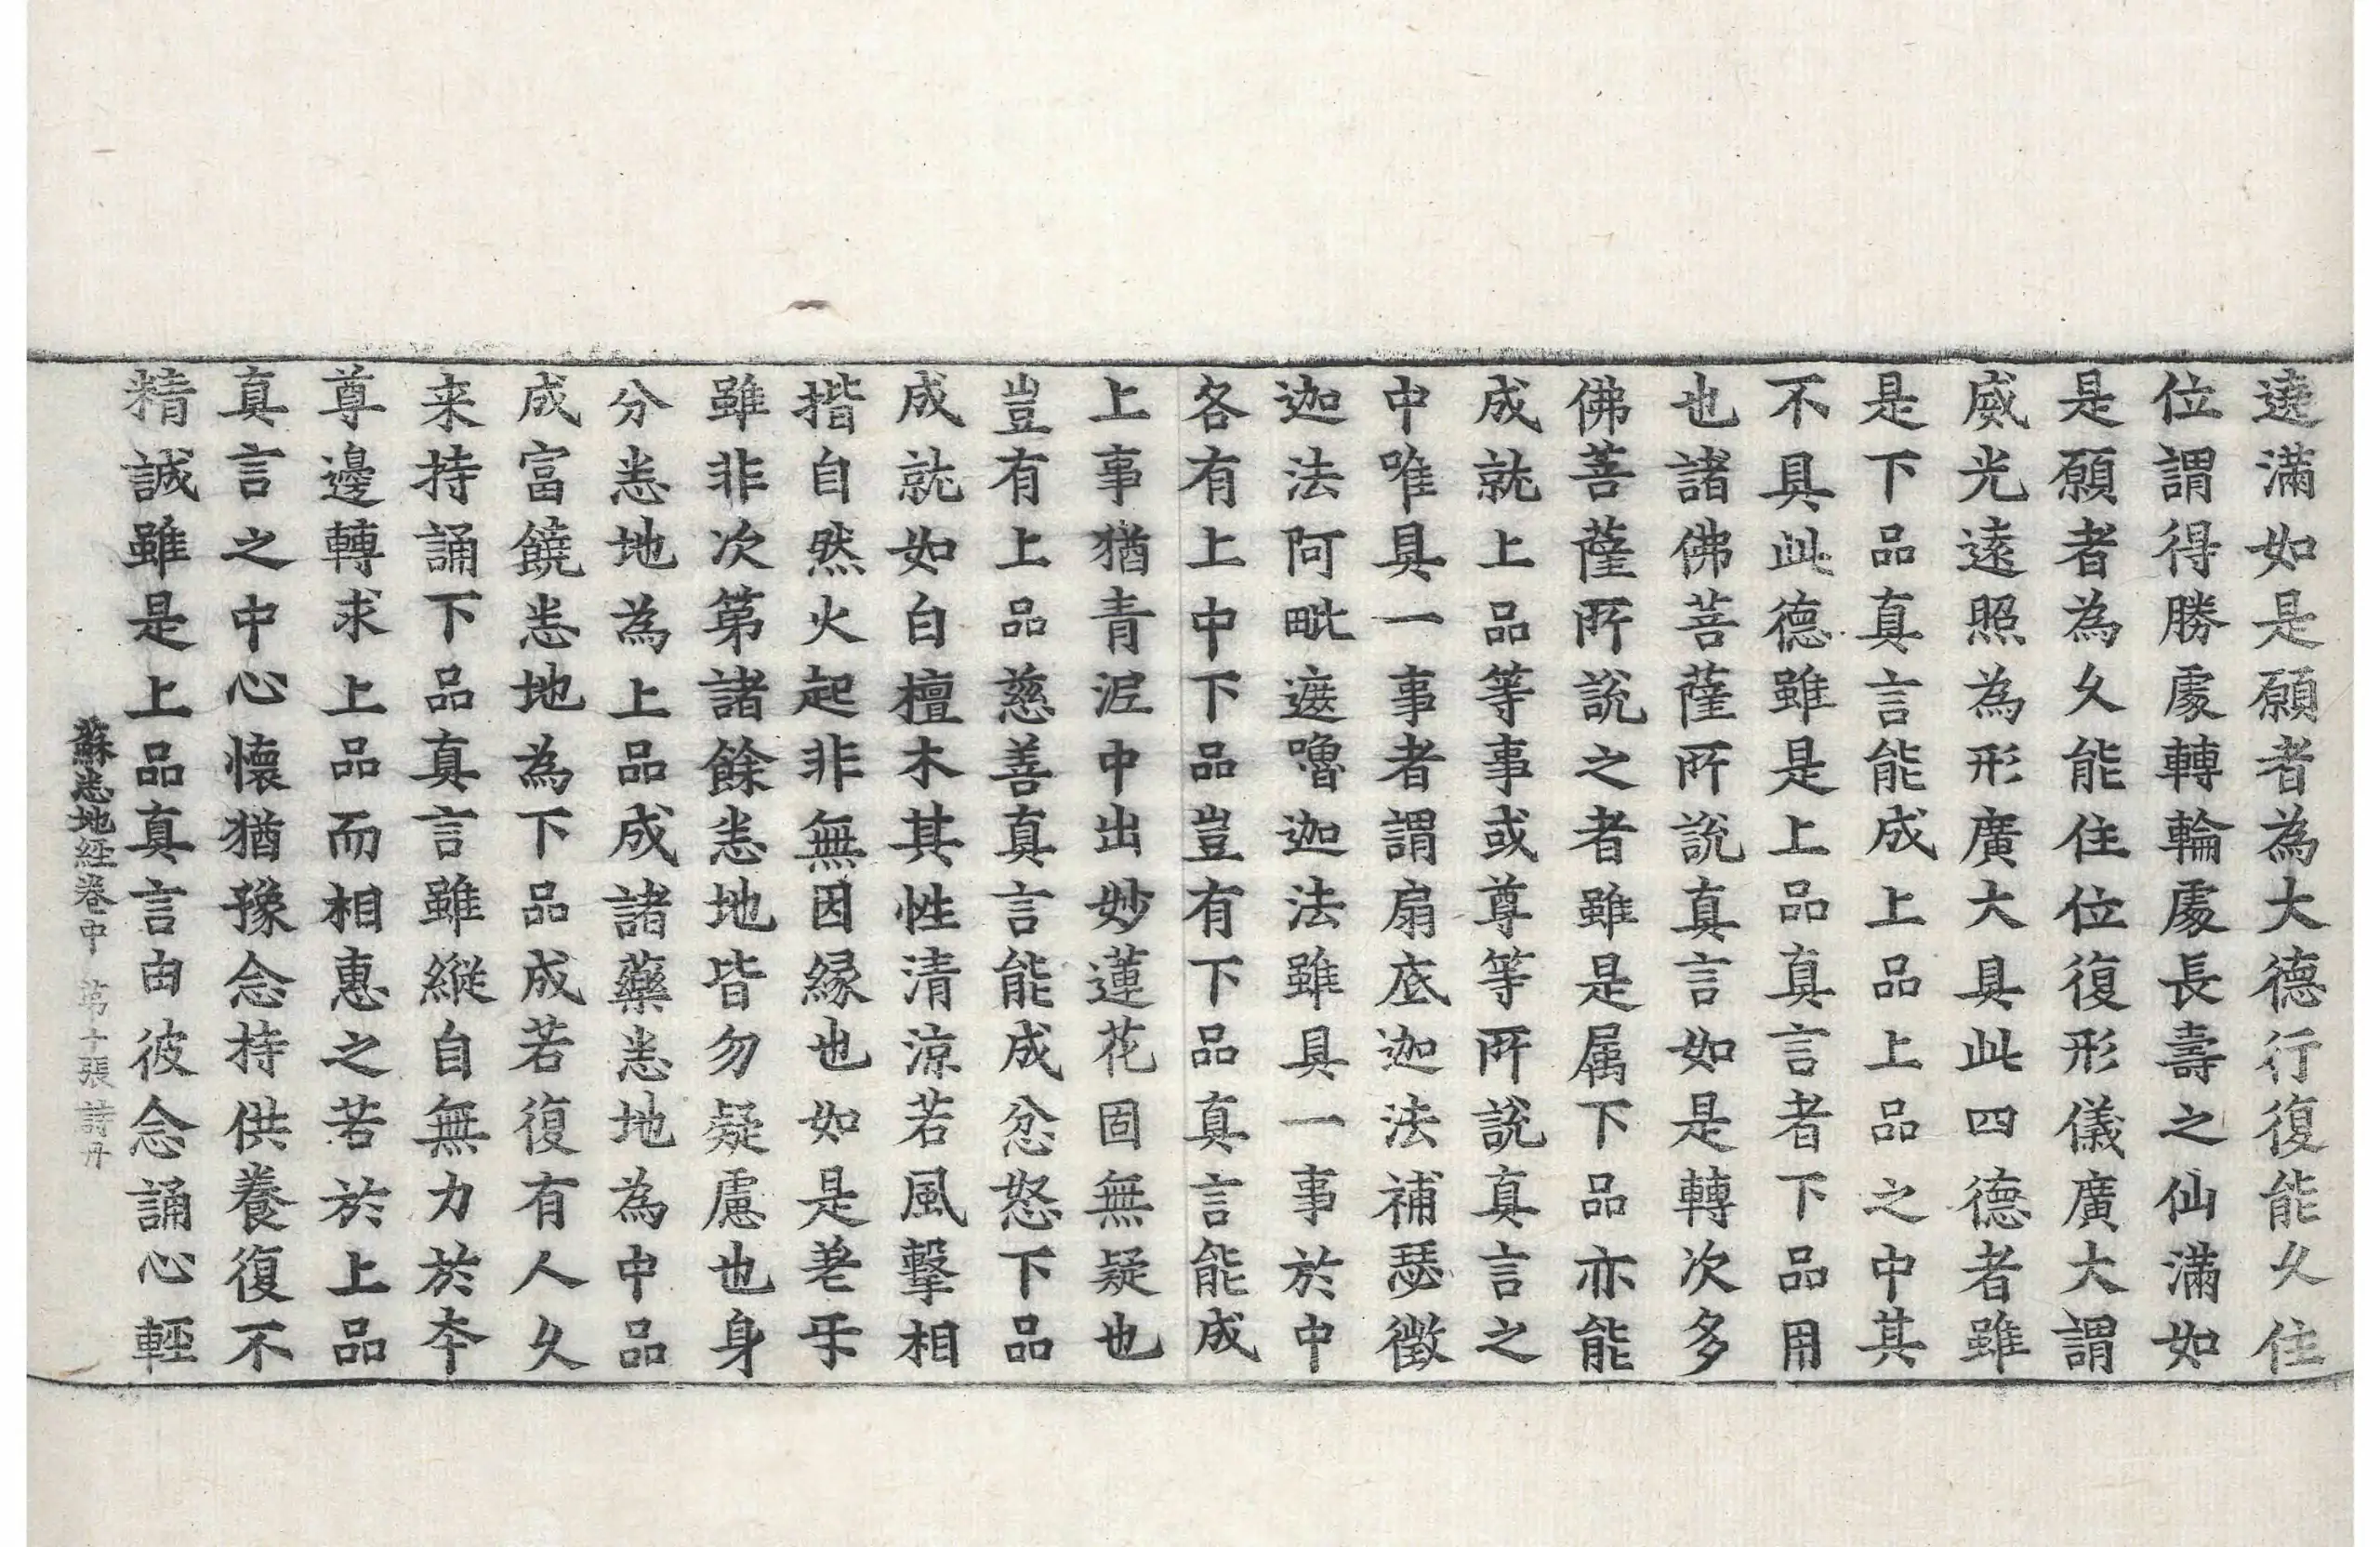 遶滿如是願者為大德行復能久住
位謂得勝處轉輪處長壽之仙滿如
是願者為久能住位復形儀廣大謂
威光遠照為形廣大具此四德者雖
是下品真言能成上品上品之中其
不具此德雖是上品真言者下品用
也諸佛菩薩所說真言如是轉次多
佛菩薩所說之者雖是属下品亦能
成就上品等事或尊等所說真言之
中唯具一事者謂扇底迦法補瑟徵
迦法阿毗遮嚕迦法雖具一事於中
各有上中下品豈有下品真言能成
上事猶青泥中出妙蓮花固無疑也
豈有上品慈善真言能成忿怒下品
成就如白檀木其性清涼若風擊相
揩自然火起非無因緣也如是差互
雖非次第諸餘悉地皆勿疑慮也身
分悉地為上品成諸藥悉地為中品
成富饒悉地為下品成若復有人久
来持誦下品真言雖縱自無力於本
尊邊轉求上品而相惠之若於上品
真言之中心懷猶豫念持供養復不
精誠雖是上品真言由彼念誦心輕
蘇悉地經卷中 第十張 詩丹